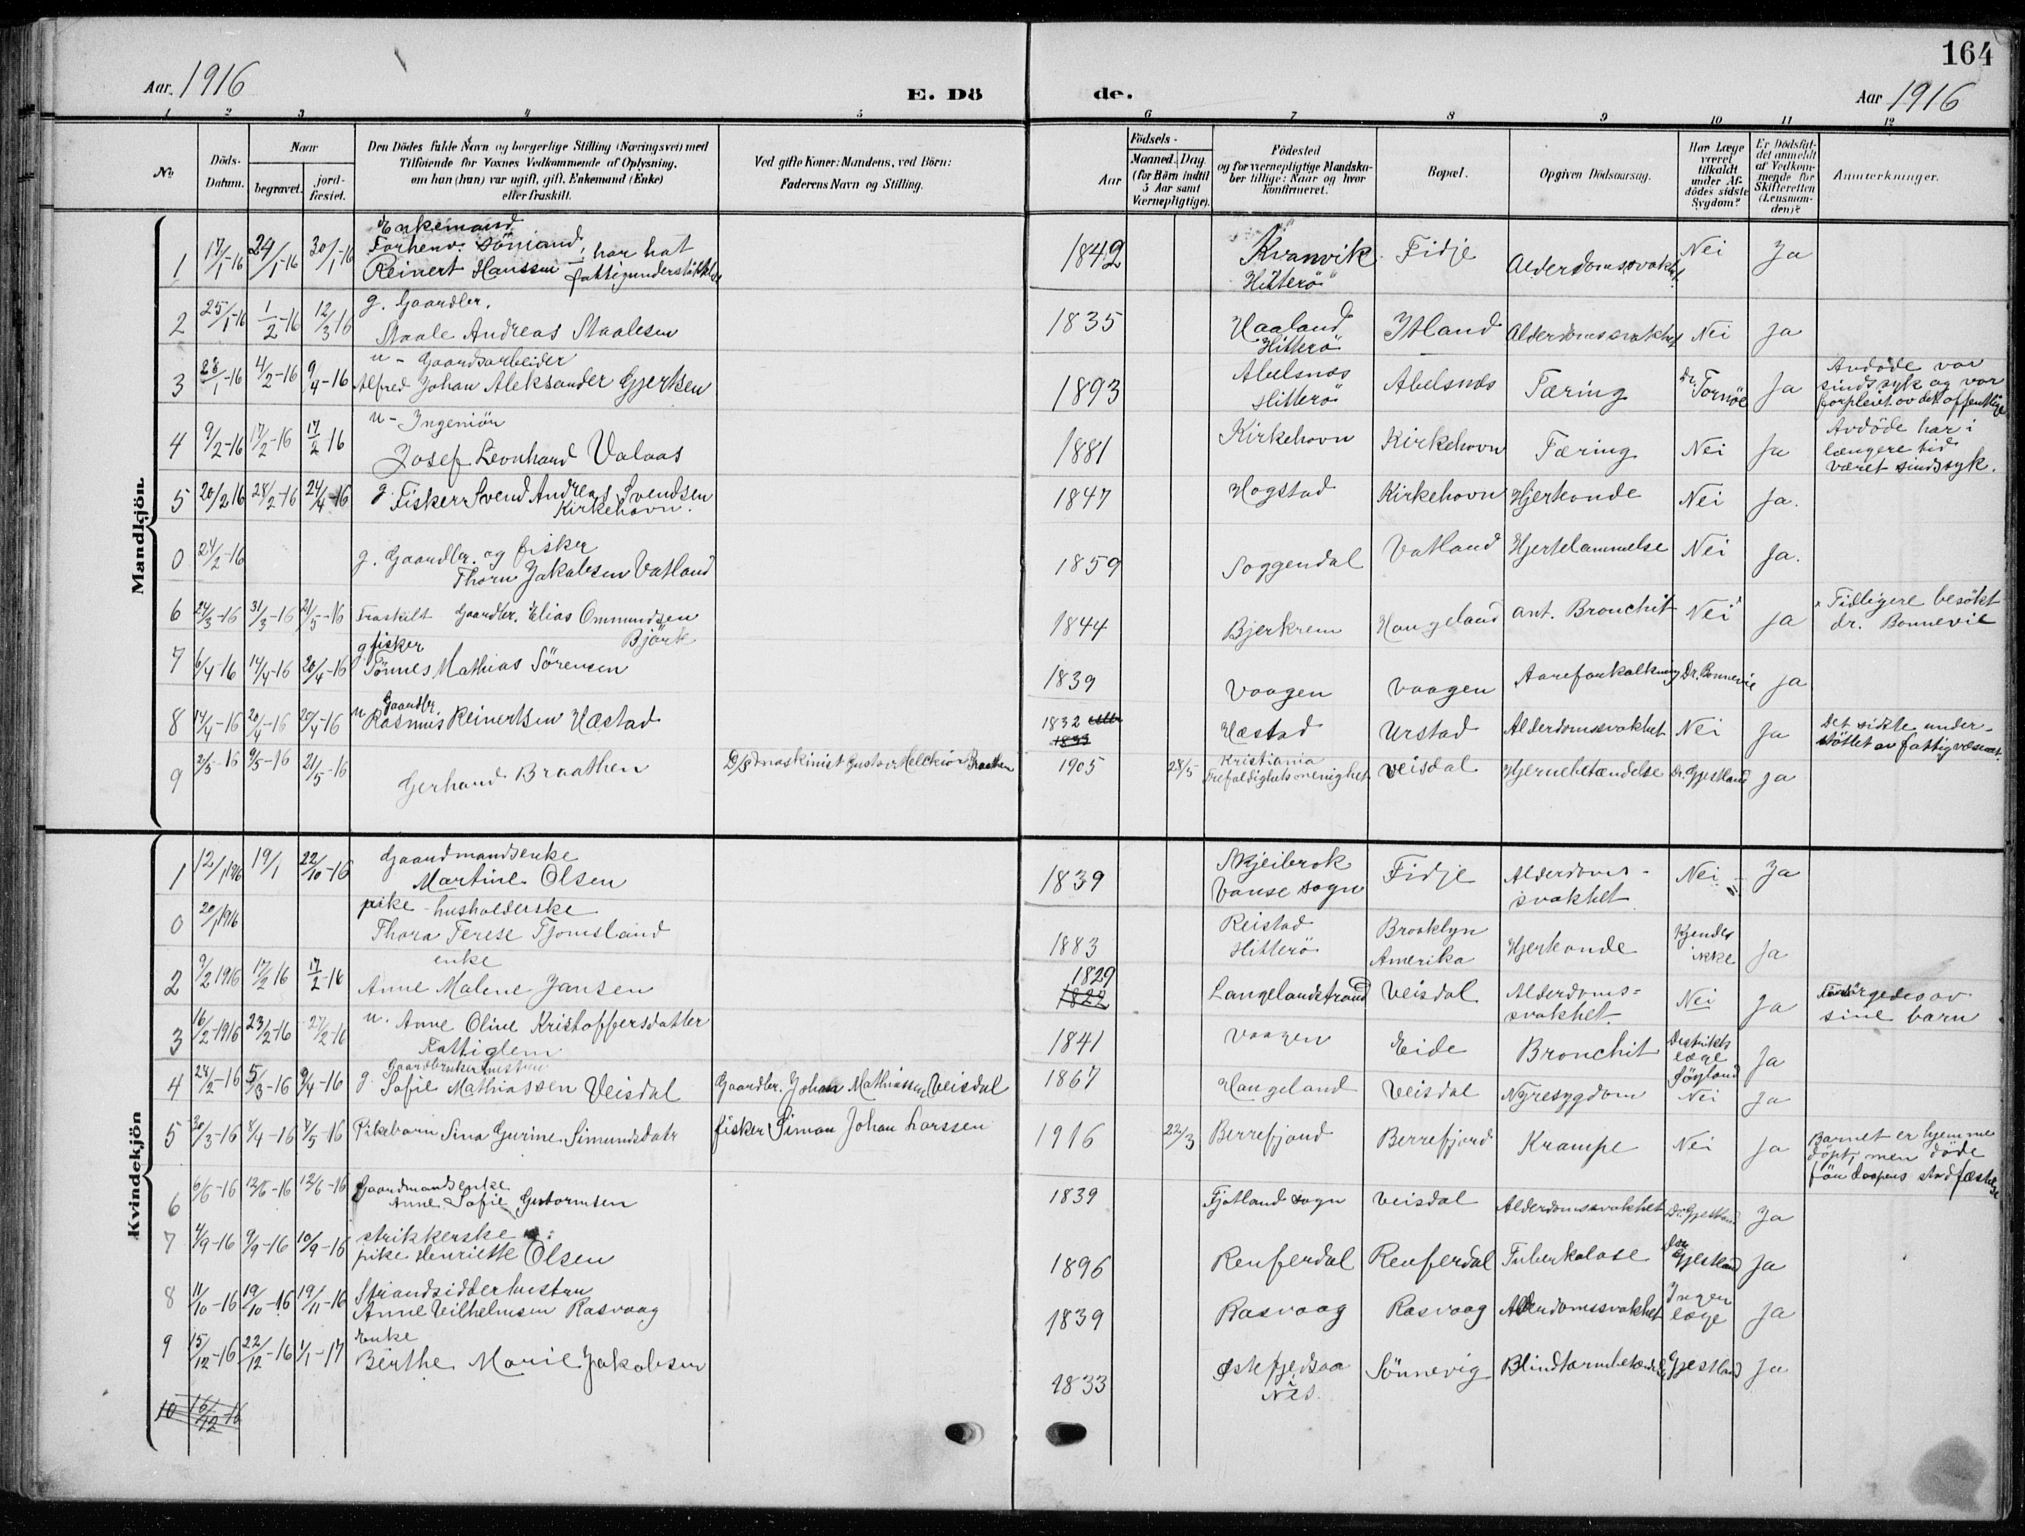 164
Aar. 1916
E. Dö
de.
Aar 1916
1 2 3 4 5 6 7 8 9 10 11 12
No
Döds-
Datum.
Naar
begravet.
jord-
fæstet.
Den Dödes fulde Navn og borgerlige Stilling (Næringsvei) med
Tilföiende for Voxnes Vedkommende af Oplysning,
om han (hun) var ugift, gift, Enkemand (Enke)
eller fraskilt.
Ved gifte Koner: Mandens, ved Börn:
Faderens Navn og Stilling.
Aar
Födsels-
Maaned. Dag.
(for Börn indtil
5 Aar samt
Værnepligtige).
Födested
og for værnepligtige Mandska-
ber tillige: Naar og hvor
konfirmeret.
Bopæl.
Opgiven Dödsaarsag.
Har Læge
været
tilkaldt
under Af-
dödes sidste
Sygdom?
Er Dödsfal-
det anmeldt
af Vedkom-
mende for
Skifteretten
(Lensman-
den)?
Anmærkninger.
Mandkjön
1 17/1-16 24/1-16 30/1-16 Enkemand
Forhenv. Sömand, har hat
Reinert Hanssen fattigunderstöttelse 1842 Kvanvik Hitterö Fidje Alderdomssvakhet Nei Ja
2 25/1-16 1/2-16 12/3 16 g. Gaardbr.
Staale Andreas Staalesen 1835 Haaland Hitterö Itland Alderdomssvakhet Nei Ja
3 28/1-16 4/2-16 9/4-16 u - Gaardsarbeider
Alfred Johan Aleksander Gjertsen 1893 Abelsnæs Hitterö Abelsnæs Tæring Dr. Tornöe Ja Avdøde var
sindssyk og var
forpleiet av det offentlige
4 9/2-16 17/2-16 17/2 16 u - Ingeniör
Josef Leonhard Valaas 1881 Kirkehavn Kirkehovn Tæring Nei Ja Avdöde har i
længere tid
været sindssyk.
5 20/2 16 28/2-16 24/4-16 g. Fisker Svend Andreas Svendsen
Kirkehavn. 1847 Hogstad Kirkehovn Hjertonde Nei Ja.
0 24/2-16 g. Gaardbr. og fisker
Thorn Jakobsen Vatland 1859 Soggendal Vatland Hjertelammelse Nei Ja.
6 24/3-16 31/3-16 21/5-16 Fraskilt Gaardbr. Elias Ommundsen
Björk 1844 Bjerkrem Haugeland ant. Bronchit Nei Ja Tidligere besökt
dr. Bonnevie
7 6/4-16 14/4-16 20/4-16 g fisker
Tönnes Mathias Sörensen 1839 Vaagen Vaagen Aareforkalkning Dr. Bonnevie Ja
8 14/4-16 20/4-16 24/4-16 u Gaardbr.
Rasmus Reinertsen Hæstad 1832 1833 Hæstad Urstad Alderdomssvakhet Nei Ja Det sidste under-
stöttet av fattigvæsenet.
9 2/5-16 9/5-16 21/5-16 Gerhard Braathen D/S maskinist Gustav Melchior Braathen 1905 28/5 Kristiania
Trefoldighets menighet Veisdal Hjernebetændelse Dr. Gjestland Ja
Kvindekjön
1 12/1 1916 19/1 22/10-16 Gaardmandsenke
Martine Olsen 1839 Skjeibrok
Vanse sogn Fidje Alderdoms-
svakhet Nei Ja
0 20/1 1916 pike - husholderske
Thora Terese Tjomsland 1883 Reistad
Hitterö Brooklyn
Amerika Hjertonde Kjendes
ikke Ja
2 9/2 1916 17/2 16 17/2-16 enke
Anne Malene Jansen 1829 1822 Langelandstrand Veisdal Alderdoms=
svakhet Nei Ja Forsörgedes av
sine barn
3 16/2-1916 23/2-16 27/2-16 u. Anne Oline Kristoffersdatter
Fattiglem 1841 Vaagen Eide Bronchit Distrikts
læge
Söyland Ja
4 24/2-16 5/3-16 9/4-16 Gaardbrukerhustru
g. Sofie Mathiassen Veisdal Gaardbr. Johan Mathiassen Veisdal 1867 Haugeland Veisdal Nyresygdom Nei Ja
5 30/3-16 8/4-16 7/5-16 Pikebarn Sina Gurine Simunsdatr fisker Simon Johan Larssen 1916 22/3 Berrefjord Berrefjord Krampe Nei Ja Barnet er hjemme
döpt, men döde
för daapens stadfæstelse
6 6/6-16 13/6-16 13/6-16 Gaardmandsenke
Anne Sofie Guttormsen 1839 Fjotland sogn Veisdal Alderdomssvakhet Dr. Gjestland Ja
7 4/9-16 9/9-16 10/9-16 strikkerske
pike Henriette Olsen 1896 Renferdal Renferdal Tuberkulose Gjestland Ja
8 11/10-16 19/10-16 19/11-16 Strandsidderhustru
Anne Vilhelmsen Rasvaag 1839 Rasvaag Rasvaag Alderdomssvakhet Ingen
læge Ja
9 15/12-16 22/12-16 1/1-17 Enke
Berthe Marie Jakobsen 1833 Nes. Sönnevig Blindtarmbetændelse Gjestland Ja
10 16/12-16